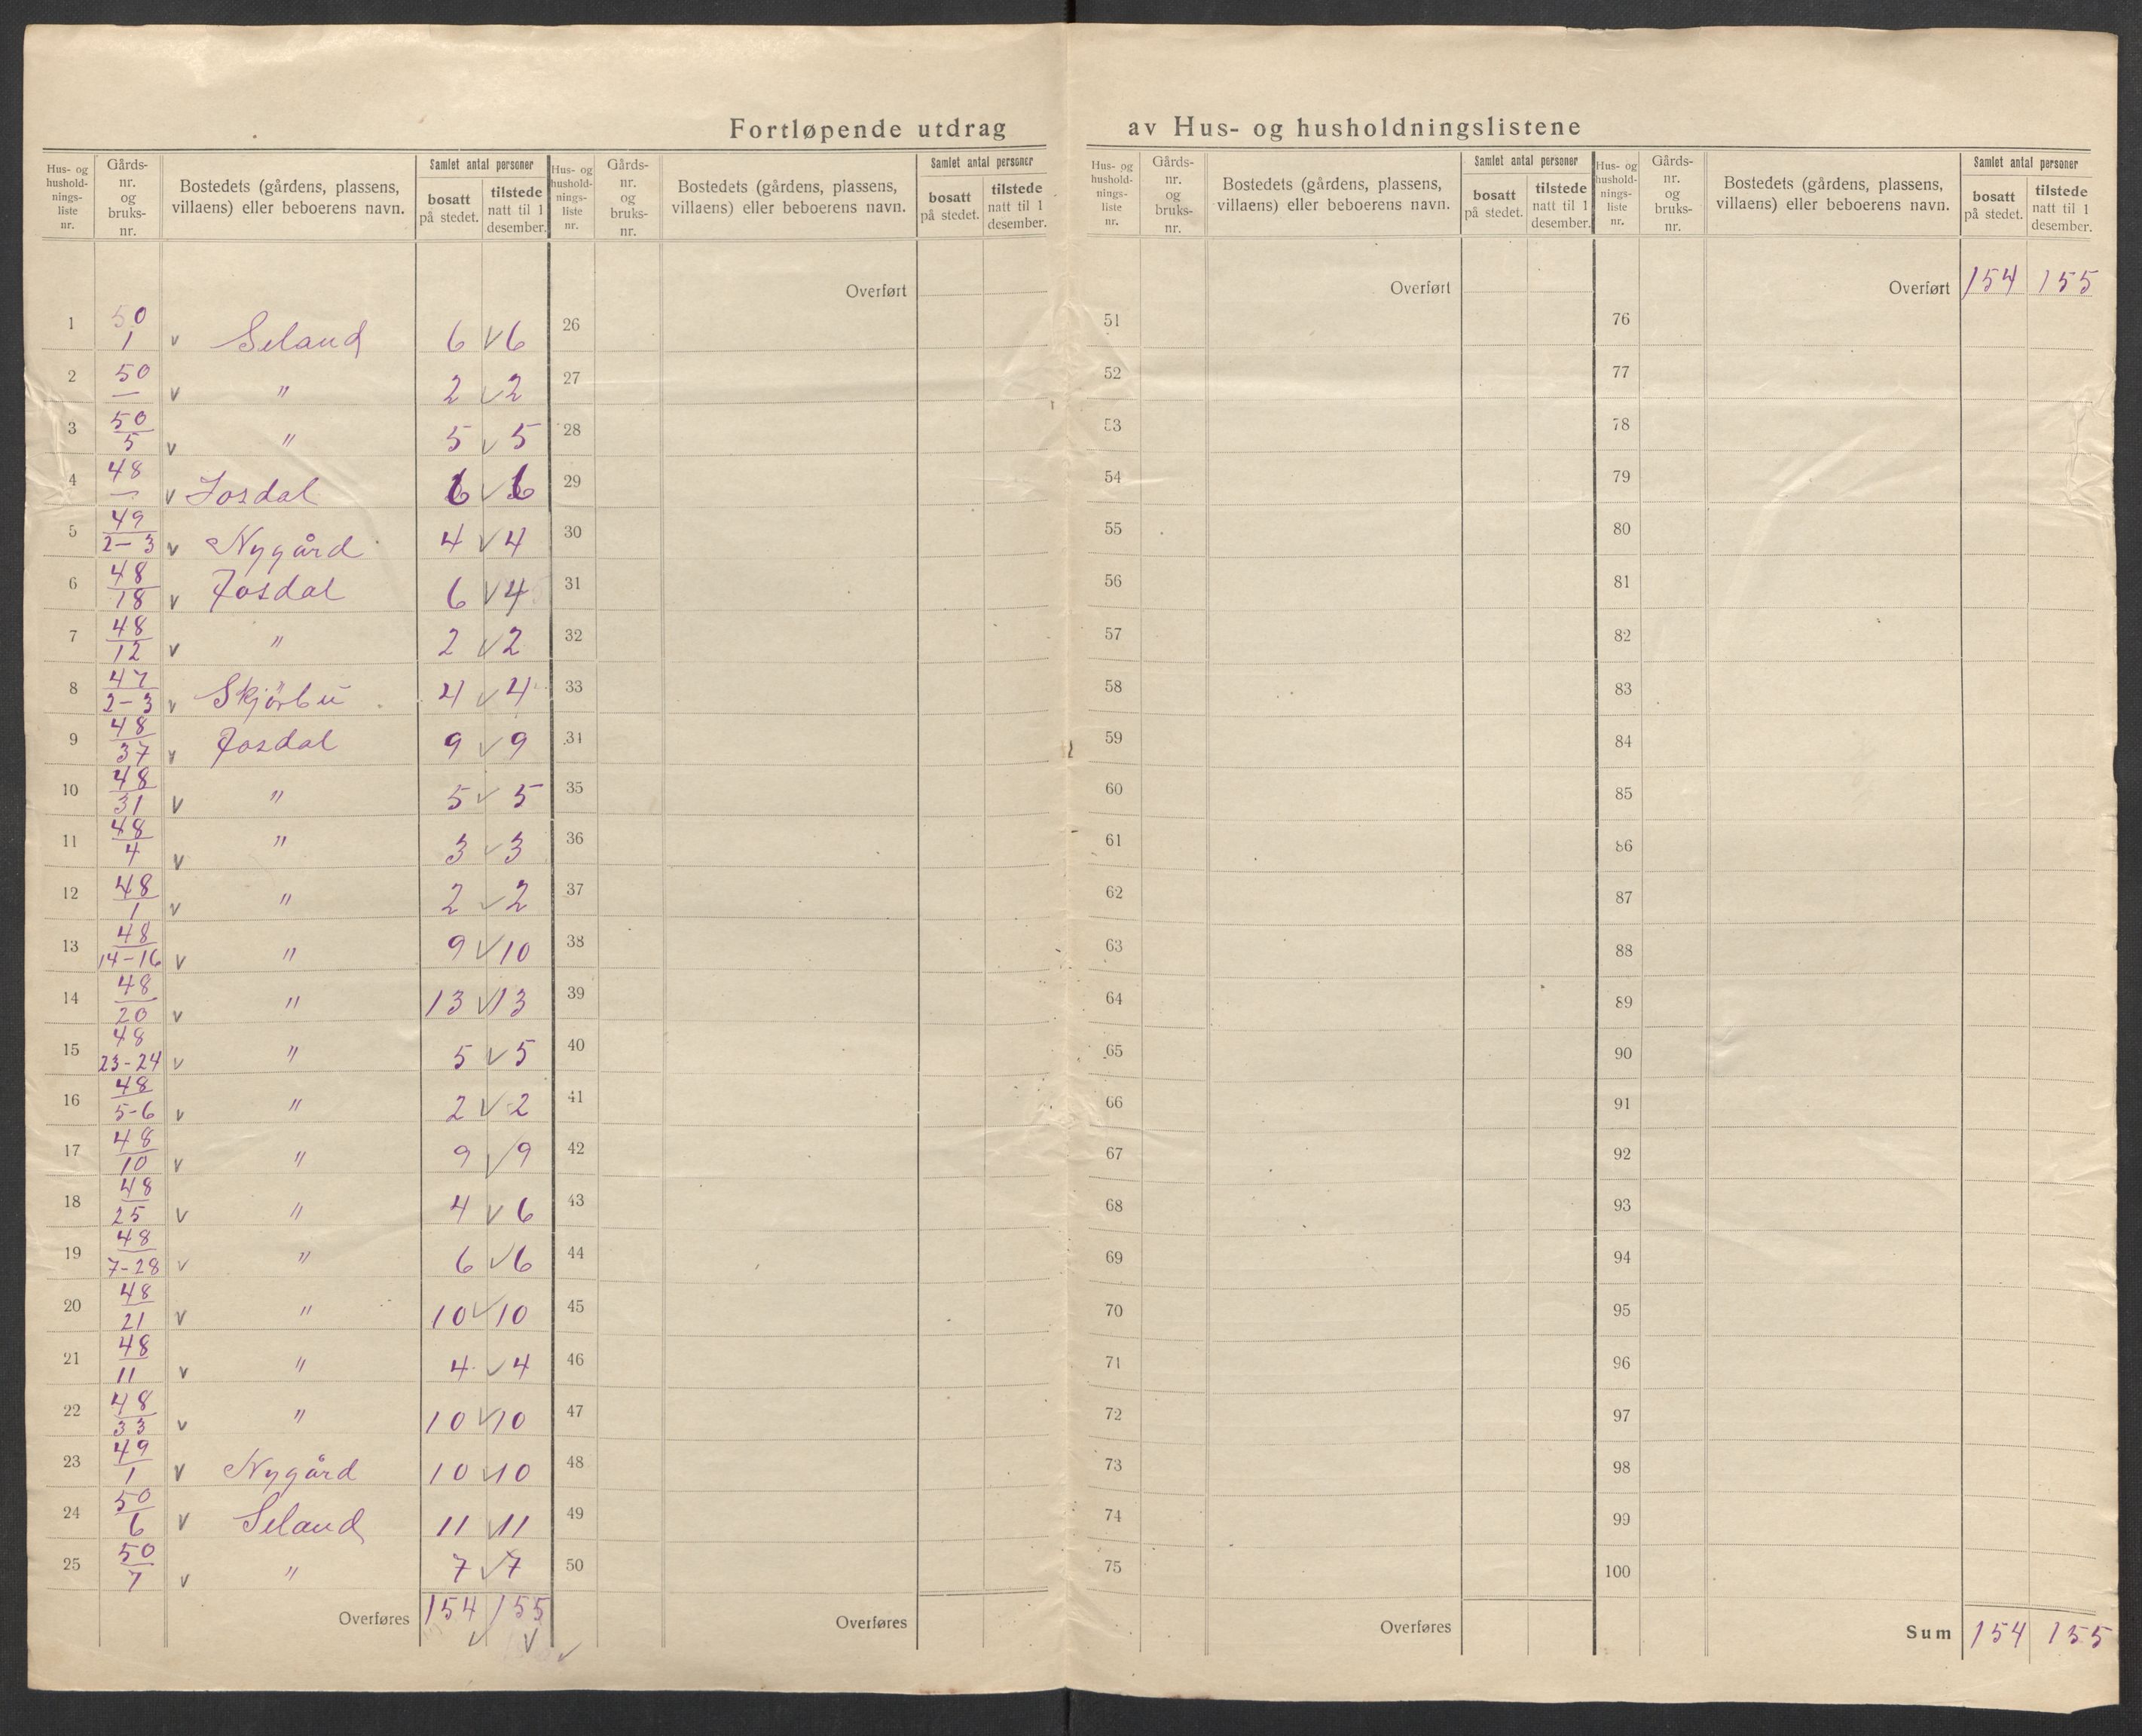 Fortløpende utdrag av Hus- og husholdningslistene
Hus- og hushold-nings-liste nr. Gårds-nr. og bruks-nr. Bostedets (gårdens, plassens, villaens) eller beboerens navn. Samlet antal personer bosatt på stedet. tilstede natt til 1 desember.
Hus- og hushold-nings-liste nr. Gårds-nr. og bruks-nr. Bostedets (gårdens, plassens, villaens) eller beboerens navn. Samlet antal personer bosatt på stedet. tilstede natt til 1 desember.
Hus- og hushold-nings-liste nr. Gårds-nr. og bruks-nr. Bostedets (gårdens, plassens, villaens) eller beboerens navn. Samlet antal personer bosatt på stedet. tilstede natt til 1 desember.
Hus- og hushold-nings-liste nr. Gårds-nr. og bruks-nr. Bostedets (gårdens, plassens, villaens) eller beboerens navn. Samlet antal personer bosatt på stedet. tilstede natt til 1 desember.
Overført Overført Overført 154 155
1 50/1 v Seland 6 v 6 26 51 76
2 50/— v " 2 v 2 27 52 77
3 50/5 v " 5 v 5 28 53 78
4 48/— v Josdal 6 v 6 29 54 79
5 49/2-3 v Nygård 4 v 4 30 55 80
6 48/18 v Josdal 6 v 4 31 56 81
7 48/12 v " 2 v 2 32 57 82
8 47/2-3 v Skjörbu 4 v 4 33 58 83
9 48/37 v Josdal 9 v 9 34 59 84
10 48/31 v " 5 v 5 35 60 85
11 48/4 v " 3 v 3 36 61 86
12 48/1 v " 2 v 2 37 62 87
13 48/14-16 v " 9 v 10 38 63 88
14 48/20 v " 13 v 13 39 64 89
15 48/23-24 v " 5 v 5 40 65 90
16 48/5-6 v " 2 v 2 41 66 91
17 48/10 v " 9 v 9 42 67 92
18 48/25 v " 4 v 6 43 68 93
19 48/7-28 v " 6 v 6 44 69 94
20 48/21 v " 10 v 10 45 70 95
21 48/11 v " 4 v 4 46 71 96
22 48/33 v " 10 v 10 47 72 97
23 49/1 v Nygård 10 v 10 48 73 98
24 50/6 v Seland 11 v 11 49 74 99
25 50/7 v " 7 v 7 50 75 100
Overføres 154 155 Overføres Overføres Sum 154 155
v v v